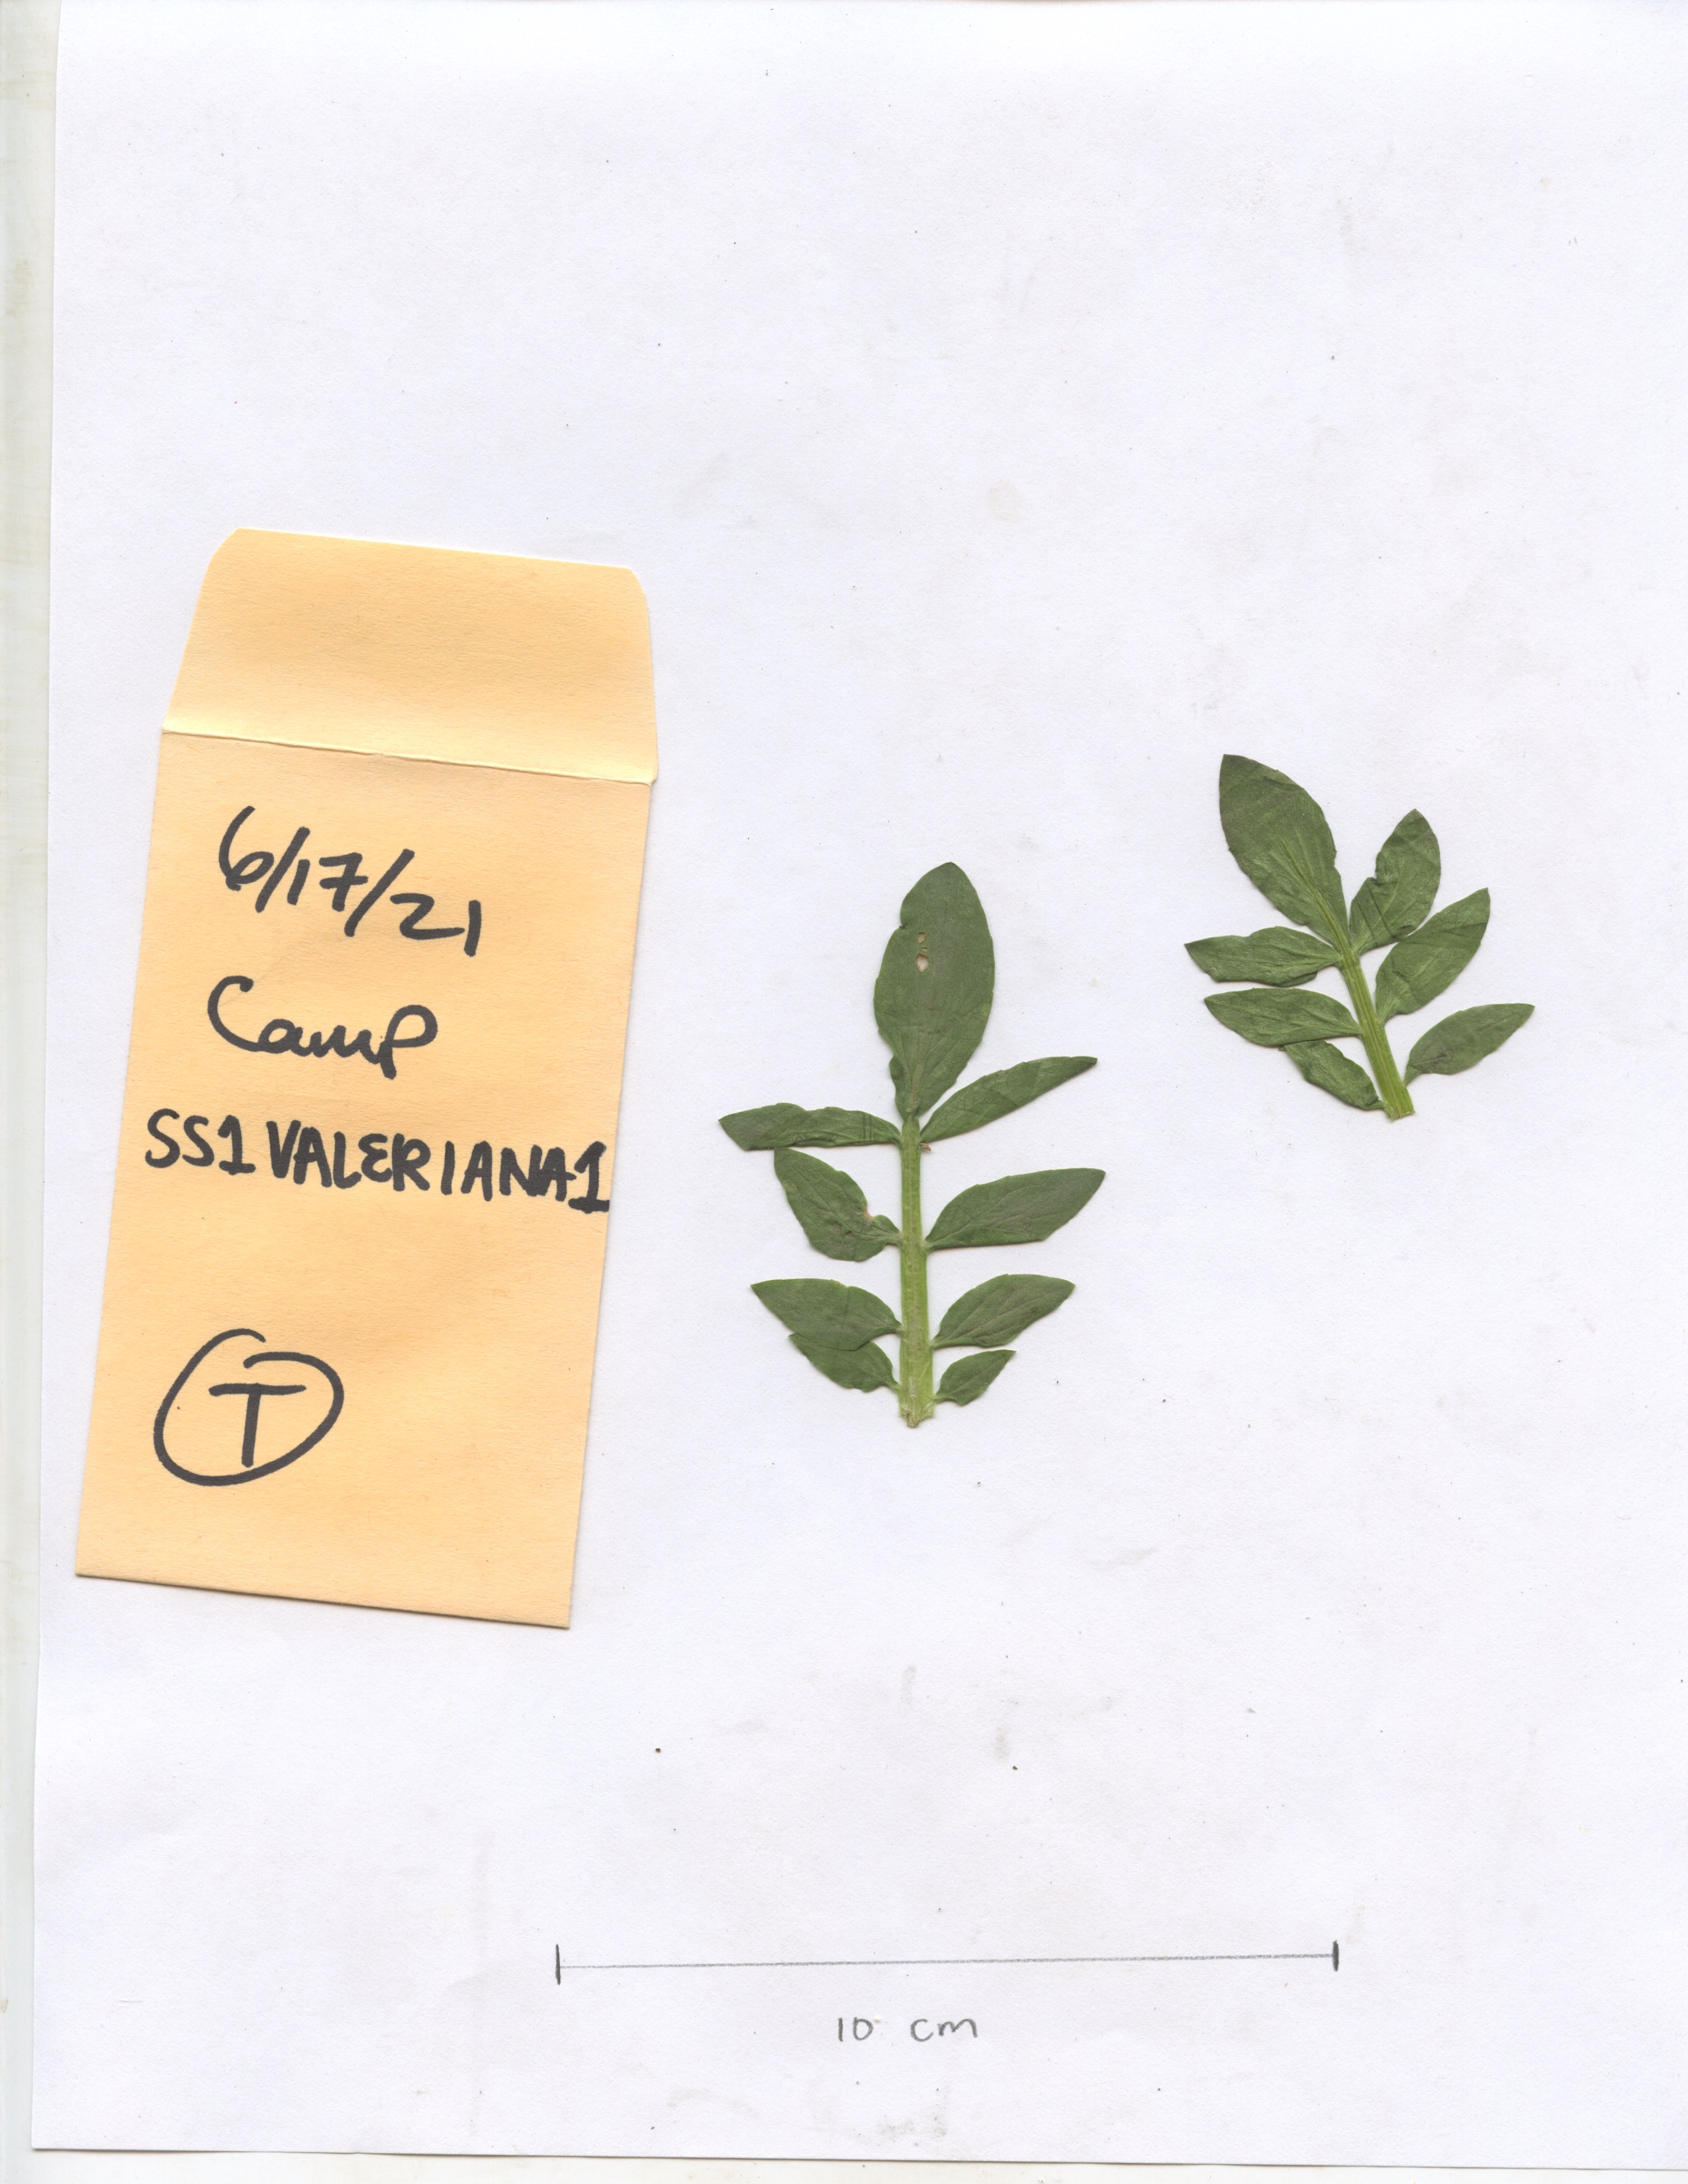 6/17/21
Camp
SS1VALERIANA1
T
10 cm